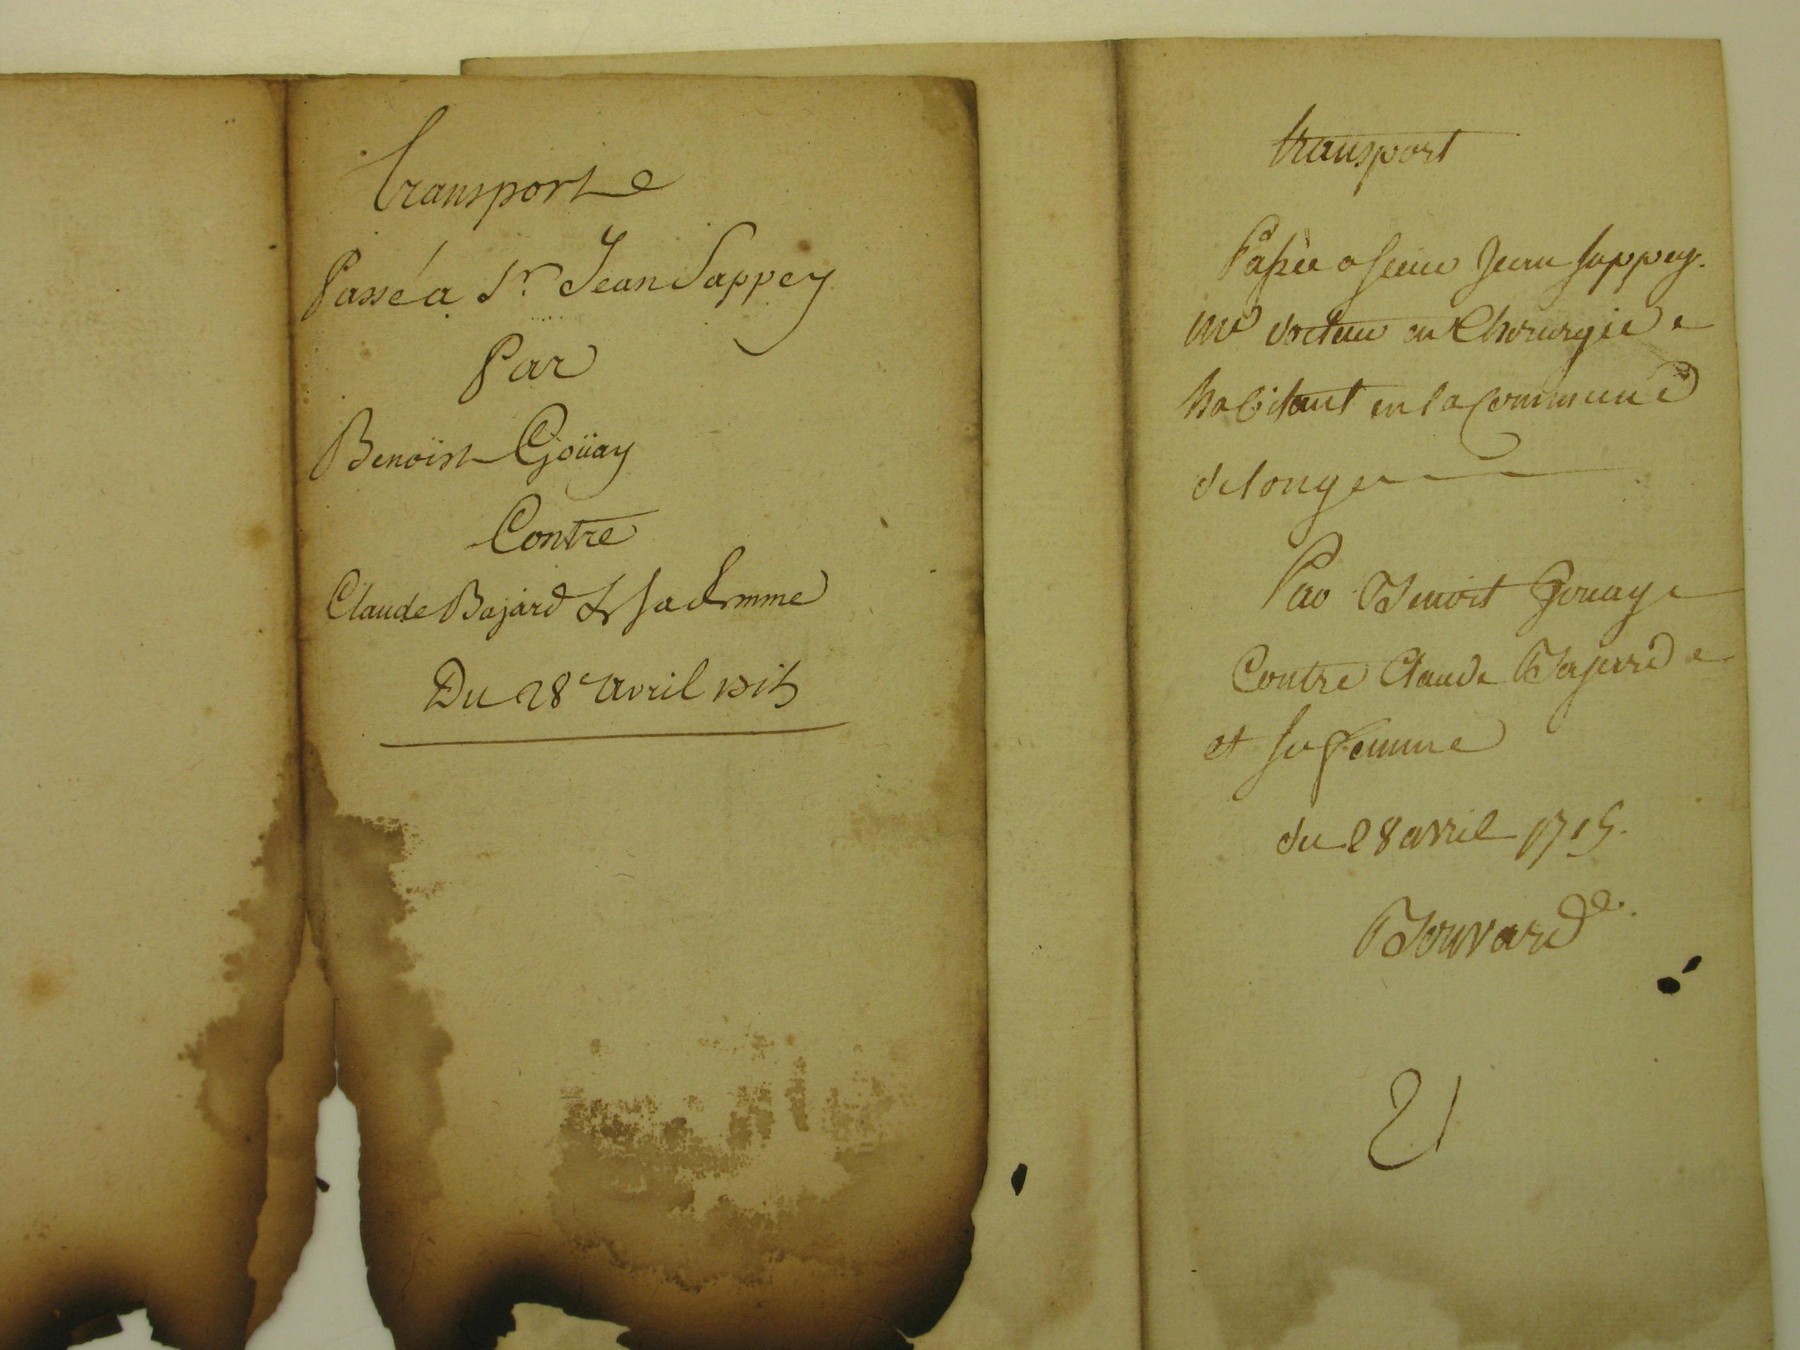 Transport
Passé a Sr. Jean Sappey
Par
Benoist Goüay
Contre
Claude Bajard & sa femme
Du 28e avril 1715
transport
Passée a sieur Jean Sappey.
me docteur en Chirurgie
habitant en la Commune
de longe
Par Benoit Gouay
Contre Claude Bajard
et sa femme
du 28 avril 1715.
Bouvard
21